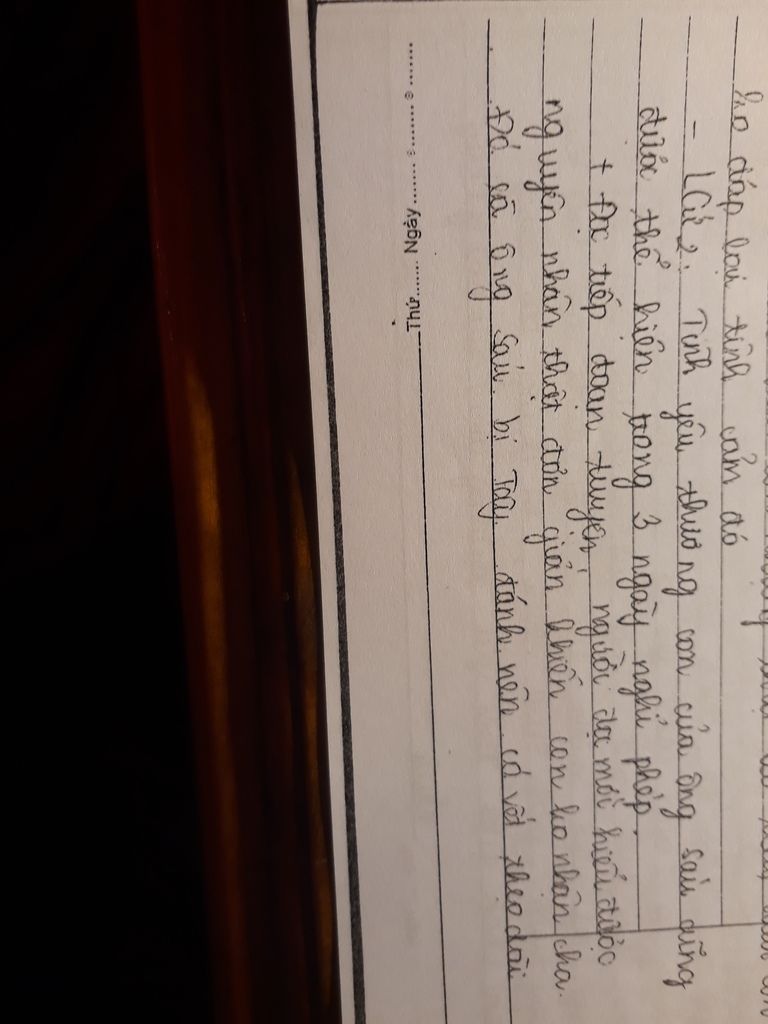 ko đáp lại tình cảm đó
- LCứ 2: Tình yêu thương con của ông sáu cũng
được thể hiện trong 3 ngày nghỉ phép.
+ Đọc tiếp đoạn truyện, người đọc mới hiểu được
nguyên nhân thật đơn giản khiến con ko nhận cha.
Đó là ông sáu bị Tây đánh nên có vết thẹo dài
Thứ....... Ngày ....... ....... .......